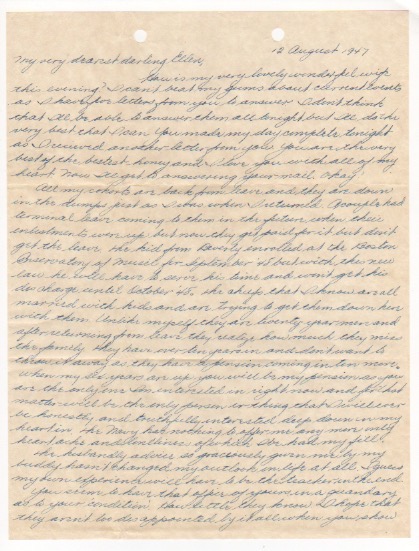 12 August 1947
My very dearest darling Ellen,
How is my very lovely wonderful wife
this evening? I can't beat my gums about current events
as I have letters from you to answer. I don't think
that I'll be able to answer them all tonight but I'll do the
very best that I can. You made my day complete tonight
as I received another letter from you. You are the very
best of the bestest honey and I love you with all of my
heart. Now I'll get to answering your mail. Okay!
All my cohorts are back from leave and they are down
in the dumps just as I was when I returned. A couple had
terminal leave coming to them in the future when their
enlistments were up but now they get paid for it but don't
get the leave. The kid from enrolled at the Boston
of Music for September '48 but with the new
law he will have to serve his time and won't get his
discharge until October '48. The chiefs that I know are all
married with kids and are trying to get them down here
with them. Unlike myself they are twenty year men and
after returning from leave they realize how much they miss
the family. They have over ten years in and don't want to
throw it away as they have a pension coming in ten more.
when my six years are up you will be my pension as you
are the only one I'm interested in right now and for that
matter will be the only person or thing that I will ever
be honestly and truthfully interested deep down in my
heart in. The Navy has nothing to offer me any more only
heartache and loneliness of which I've had my fill.
The husbandly advice so graciously given me by my
buddy hasn't changed my outlook on life at all. I guess
my own experience will have to be the teacher in the end.
You seem to have that office of yours in a quandary
as to your condition. How little they know. I hope that
they aren't too disappointed by it all when you show